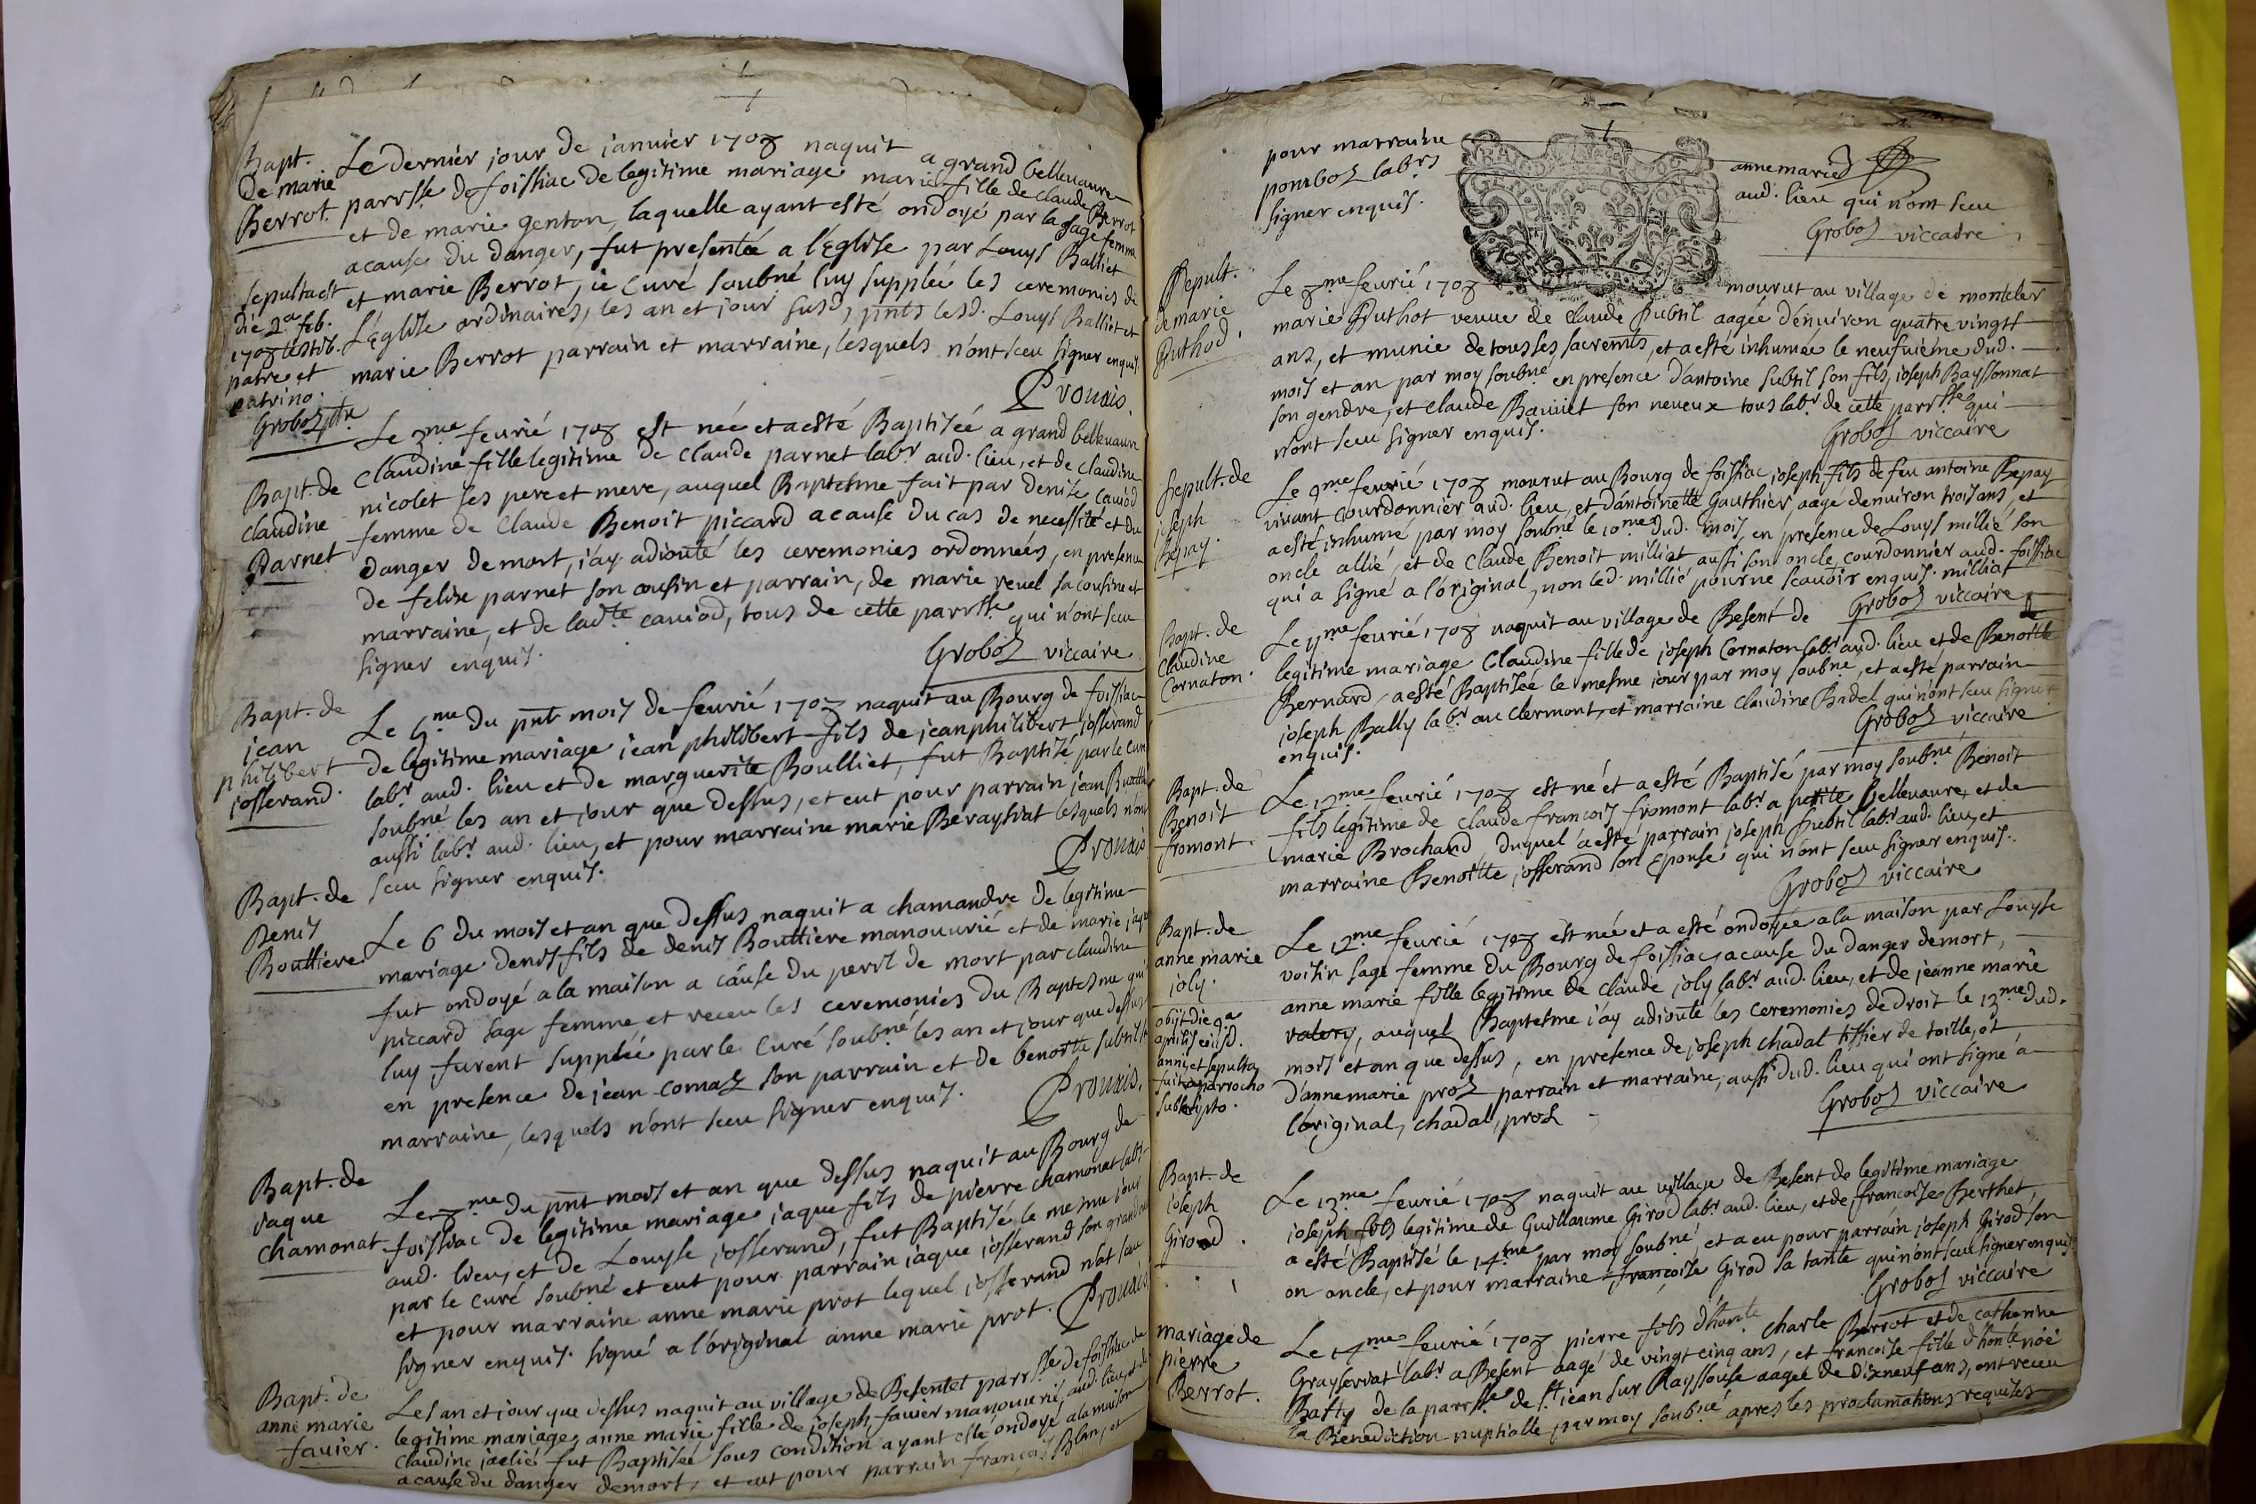 Bapt.
de marie
Berrot.
Le dernier jour de janvier 1708 naquit a grand bellevavre
parrsse de foissiac de legitime mariage marie fille de claude Berrot
et de marie genton, laquelle ayant esté ondoyé par la sage femme
a cause du danger, fut presentée a l'Eglise par Louys Balliet
et marie Berrot, ie curé soubné luy supplée les ceremonies de
l'Eglise ordinaires, les an et jour susd, pnts lesd. Louys Balliet et
marie Berrot parrain et marraine, lesquels n'ont sceu signer enquis
Provais.
sepulta est
die 2a feb.
1708 testib.
patre et
patrino.
Groboz ptr
Bapt. de
claudine
Parnet
Le 3me fevrié 1708 est née et a esté Baptisée a grand bellevavre
claudine fille legitime de claude parnet labr aud. lieu, et de claudine
nicolet ses pere et mere, auquel Baptesme fait par denise caviod
femme de claude Benoit piccard a cause du cas de necessité et du
danger de mort, i'ay adiouté les ceremonies ordonnées, en presence
de felise parnet son cousin et parrain, de marie revel sa cousine et
marraine, et de ladte caviod, tous de cette parrsse qui n'ont sceu
signer enquis.
Groboz viccaire
Bapt. de
jean
philibert
josserand.
Le 5me du pnt mois de fevrié 1708 naquit au Bourg de foissiac
de legitime mariage jean philibert fils de jean philibert josserand
labr aud. lieu et de marguerite Boulliet, fut Baptisé par le curé
soubné les an et jour que dessus, et eut pour parrain jean
aussi labr aud. lieu, et pour marraine marie lesquels n'ont
sceu signer enquis.
Provais
Bapt. de
Denis
Bouttiere
Le 6 du mois et an que dessus naquit a chamandre de legitime
mariage denis fils de denis Bouttiere manouvrié et de marie
fut ondoyé a la maison a cause du peril de mort par claudine
piccard sage femme, et receu les ceremonies du Baptesme qui
luy furent supplée par le curé soubné les an et jour que dessus
en presence de jean cornaz son parrain et de benoitte subtil sa
marraine, lesquels n'ont sceu signer enquis.
Provais.
Bapt. de
jaque
chamonat
Le 7me du pnt mois et an que dessus naquit au Bourg de
foissiac de legitime mariage jaque fils de pierre chamonat labr
aud. lieu, et de Louyse josserand, fut Baptisé le mesme jour
par le curé soubné et eut pour parrain jaque josserand son grand
et pour marraine anne marie prot lequel josserand n'at sceu
signer enquis. signé a l'original anne marie prot.
Provais
Bapt. de
anne marie
favier.
Les an et jour que dessus naquit au village de Besentet parrsse de foissiac de
legitime mariage anne marie fille de joseph favier manouvrié, aud. lieu, et de
claudine fut Baptisée sous condition ayant esté ondoyé a la maison
a cause du danger de mort, et eut pour parrain françois Blanc, et
pour marraine anne marie
pourboz labrs aud. lieu qui n'ont sceu
signer enquis.
Groboz viccaire
Sepult.
de marie
Puthod.
Le 8me fevrié 1708 mourut au village de
marie Puthot veuve de claude Subtil aagée d'environ quatre vingt
ans, et munie de tous les sacremts, et a esté inhumée le neufvième dud.
mois et an par moy soubné en presence d'antoine subtil son fils, joseph Bayssonnat
son gendre, et claude son neveux tous labr de cette parrsse qui
n'ont sceu signer enquis.
Groboz viccaire
Sepult. de
joseph
Repay.
Le 9me fevrié 1708 mourut au Bourg de foissiac joseph fils de feu antoine Repay
vivant courdonnier aud. lieu, et d'antoinette Gauthier, aagé d'environ trois ans, et
a esté inhumé par moy soubné le 10me dud. mois, en presence de Louys millié son
oncle allié, et de claude Benoit milliat aussi son oncle, courdonnier aud. foissiac
qui a signé a l'original, non led. millié pour ne scavoir enquis. milliat
Groboz viccaire
Bapt. de
claudine
Cornaton.
Le 11me fevrié 1708 naquit au village de Besent de
legitime mariage Claudine fille de joseph Cornaton labr aud. lieu et de Benoitte
Bernard, a esté Baptisée le mesme jour par moy soubné, et a esté parrain
joseph Bally labr au clermont, et marraine claudine Badel qui n'ont sceu signer
enquis.
Groboz viccaire
Bapt. de
Benoit
fromont.
Le 12me fevrié 1708 est né et a esté Baptisé par moy soubné, Benoit
fils legitime de claude francois fromont labr a petite bellevavre, et de
marie Brochand, duquel a esté parrain joseph subtil labr aud. lieu, et
marraine Benoitte josserand son Epouse qui n'ont sceu signer enquis.
Groboz viccaire
Bapt. de
anne marie
joly.
Le 12me fevrié 1708 est née et a esté ondoyée a la maison par Louyse
voisin sage femme du Bourg de foissiac, a cause du danger de mort,
anne marie fille legitime de claude joly labr aud. lieu, et de jeanne marie
valory, auquel Baptesme i'ay adiouté les ceremonies de droit le 13me dud.
mois et an que dessus, en presence de joseph chadal tissier de toille, et
d'anne marie proz parrain et marraine, aussi dud. lieu qui ont signé a
l'original, chadal, proz
Groboz viccaire
obijt die 9a
aprilis eiusd.
anni, et sepulta
fuit a parrocho
subscripto.
Bapt. de
joseph
Girod.
Le 13me fevrié 1708 naquit au village de Besent de legitime mariage
joseph fils legitime de Guillaume Girod labr aud. lieu, et de francoise Berthet,
a esté Baptisé le 14me par moy soubné, et a eu pour parrain joseph Girod son
on oncle, et pour marraine françoise Girod sa tante qui n'ont sceu signer enquis
Groboz viccaire
mariage de
pierre
Berrot.
Le 14me fevrié 1708 pierre fils d'honte charle Berrot et de catherine
Grayservat labr a Besent aagé de vingt cinq ans, et francoise fille d'honte noé
Batty de la parrsse de st jean sur Rayssouse aagée de dixneuf ans, ont receu
la Benediction nuptialle par moy soubné apres les proclamations requises